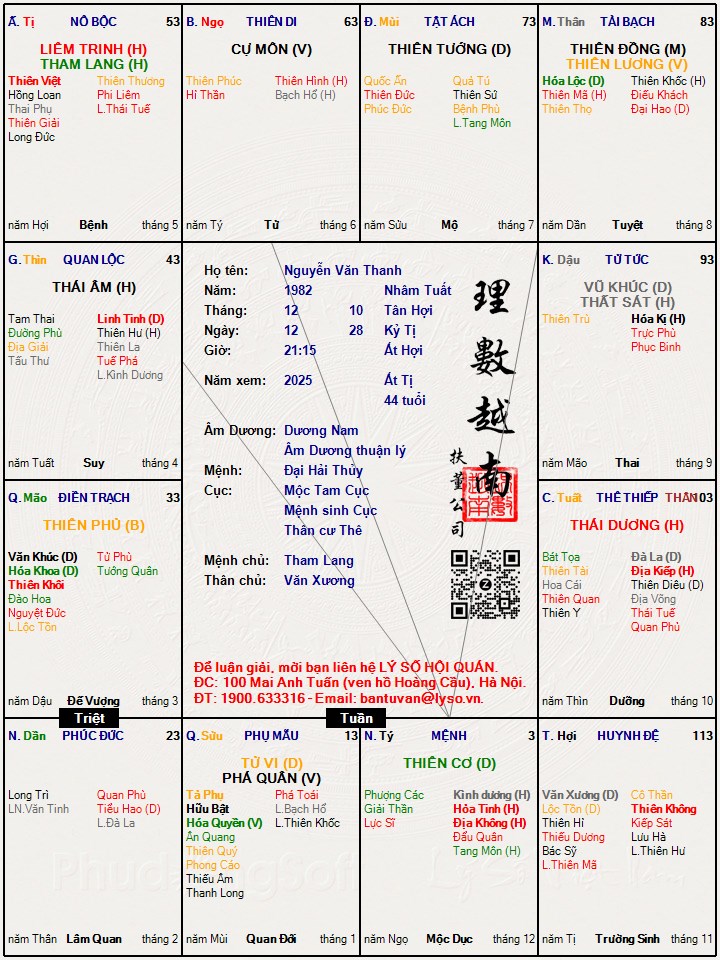 Ấ. Tị NÔ BỘC 53
LIÊM TRINH (H)
THAM LANG (H)
Thiên Việt Thiên Thương
Hồng Loan Phi Liêm
Thai Phụ L.Thái Tuế
Thiên Giải
Long Đức
năm Hợi Bệnh tháng 5
B. Ngọ THIÊN DI 63
CỰ MÔN (V)
Thiên Phúc Thiên Hình (H)
Hỉ Thần Bạch Hổ (H)
năm Tý Tử tháng 6
Đ. Mùi TẬT ÁCH 73
THIÊN TƯỚNG (D)
Quốc Ấn Quả Tú
Thiên Đức Thiên Sứ
Phúc Đức Bệnh Phù
L.Tang Môn
năm Sửu Mộ tháng 7
M. Thân TÀI BẠCH 83
THIÊN ĐỒNG (M)
THIÊN LƯƠNG (V)
Hóa Lộc (D) Thiên Khốc (H)
Thiên Mã (H) Điếu Khách
Thiên Thọ Đại Hao (D)
năm Dần Tuyệt tháng 8
G. Thìn QUAN LỘC 43
THÁI ÂM (H)
Tam Thai Linh Tinh (D)
Đường Phù Thiên Hư (H)
Địa Giải Thiên La
Tấu Thư Tuế Phá
L.Kình Dương
năm Tuất Suy tháng 4
Họ tên: Nguyễn Văn Thanh
Năm: 1982 Nhâm Tuất
Tháng: 12 10 Tân Hợi
Ngày: 12 28 Kỷ Tị
Giờ: 21:15 Ất Hợi
Năm xem: 2025 Ất Tị
44 tuổi
Âm Dương: Dương Nam
Âm Dương thuận lý
Mệnh: Đại Hải Thủy
Cục: Mộc Tam Cục
Mệnh sinh Cục
Thân cư Thê
Mệnh chủ: Tham Lang
Thân chủ: Văn Xương
理數越南
扶董公司
Để luận giải, mời bạn liên hệ LÝ SỐ HỘI QUÁN.
ĐC: 100 Mai Anh Tuấn (ven hồ Hoàng Cầu), Hà Nội.
ĐT: 1900.633316 - Email: bantuvan@lyso.vn.
K. Dậu TỬ TỨC 93
VŨ KHÚC (D)
THẤT SÁT (H)
Thiên Trù Hóa Kị (H)
Trực Phù
Phục Binh
năm Mão Thai tháng 9
Q. Mão ĐIỀN TRẠCH 33
THIÊN PHỦ (B)
Văn Khúc (D) Tử Phù
Hóa Khoa (D) Tướng Quân
Thiên Khôi
Đào Hoa
Nguyệt Đức
L.Lộc Tồn
năm Dậu Đế Vượng tháng 3
C. Tuất THÊ THIẾP THÂN 103
THÁI DƯƠNG (H)
Bát Tọa Đà La (D)
Thiên Tài Địa Kiếp (H)
Hoa Cái Thiên Diêu (D)
Thiên Quan Địa Võng
Thiên Y Thái Tuế
Quan Phủ
năm Thìn Dưỡng tháng 10
Triệt
Tuần
N. Dần PHÚC ĐỨC 23
Long Trì Quan Phù
LN.Văn Tinh Tiểu Hao (D)
L.Đà La
năm Thân Lâm Quan tháng 2
Q. Sửu PHỤ MẪU 13
TỬ VI (D)
PHÁ QUÂN (V)
Tả Phụ Phá Toái
Hữu Bật L.Bạch Hổ
Hóa Quyền (V) L.Thiên Khốc
Ân Quang
Thiên Quý
Phong Cáo
Thiếu Âm
Thanh Long
năm Mùi Quan Đới tháng 1
N. Tý MỆNH 3
THIÊN CƠ (D)
Phượng Các Kình dương (H)
Giải Thần Hỏa Tinh (H)
Lực Sĩ Địa Không (H)
Đẩu Quân
Tang Môn (H)
năm Ngọ Mộc Dục tháng 12
T. Hợi HUYNH ĐỆ 113
Văn Xương (D) Cô Thần
Lộc Tồn (D) Thiên Không
Thiên Hỉ Kiếp Sát
Thiếu Dương Lưu Hà
Bác Sỹ L.Thiên Hư
L.Thiên Mã
năm Tị Trường Sinh tháng 11